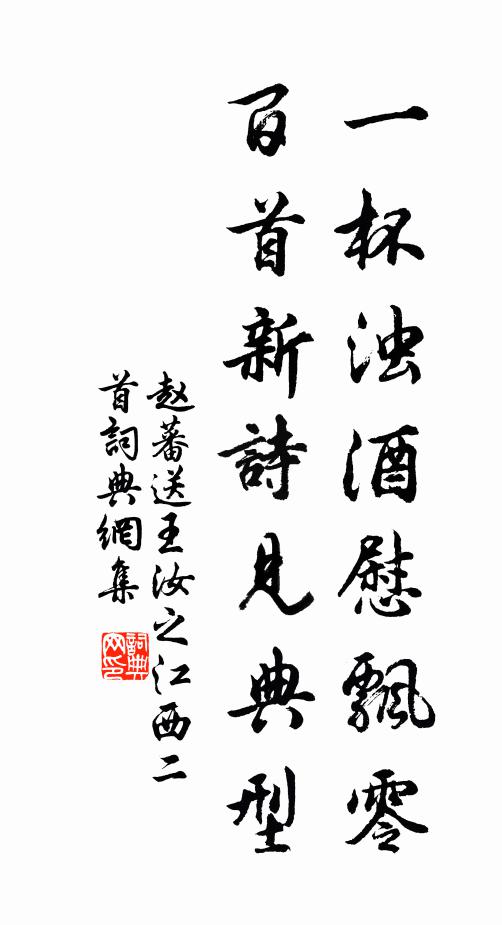 一杯浊酒慰飄零
百首新詩見典型
赵蕃送王汝之江西二
首詞典網集
詞典
网印